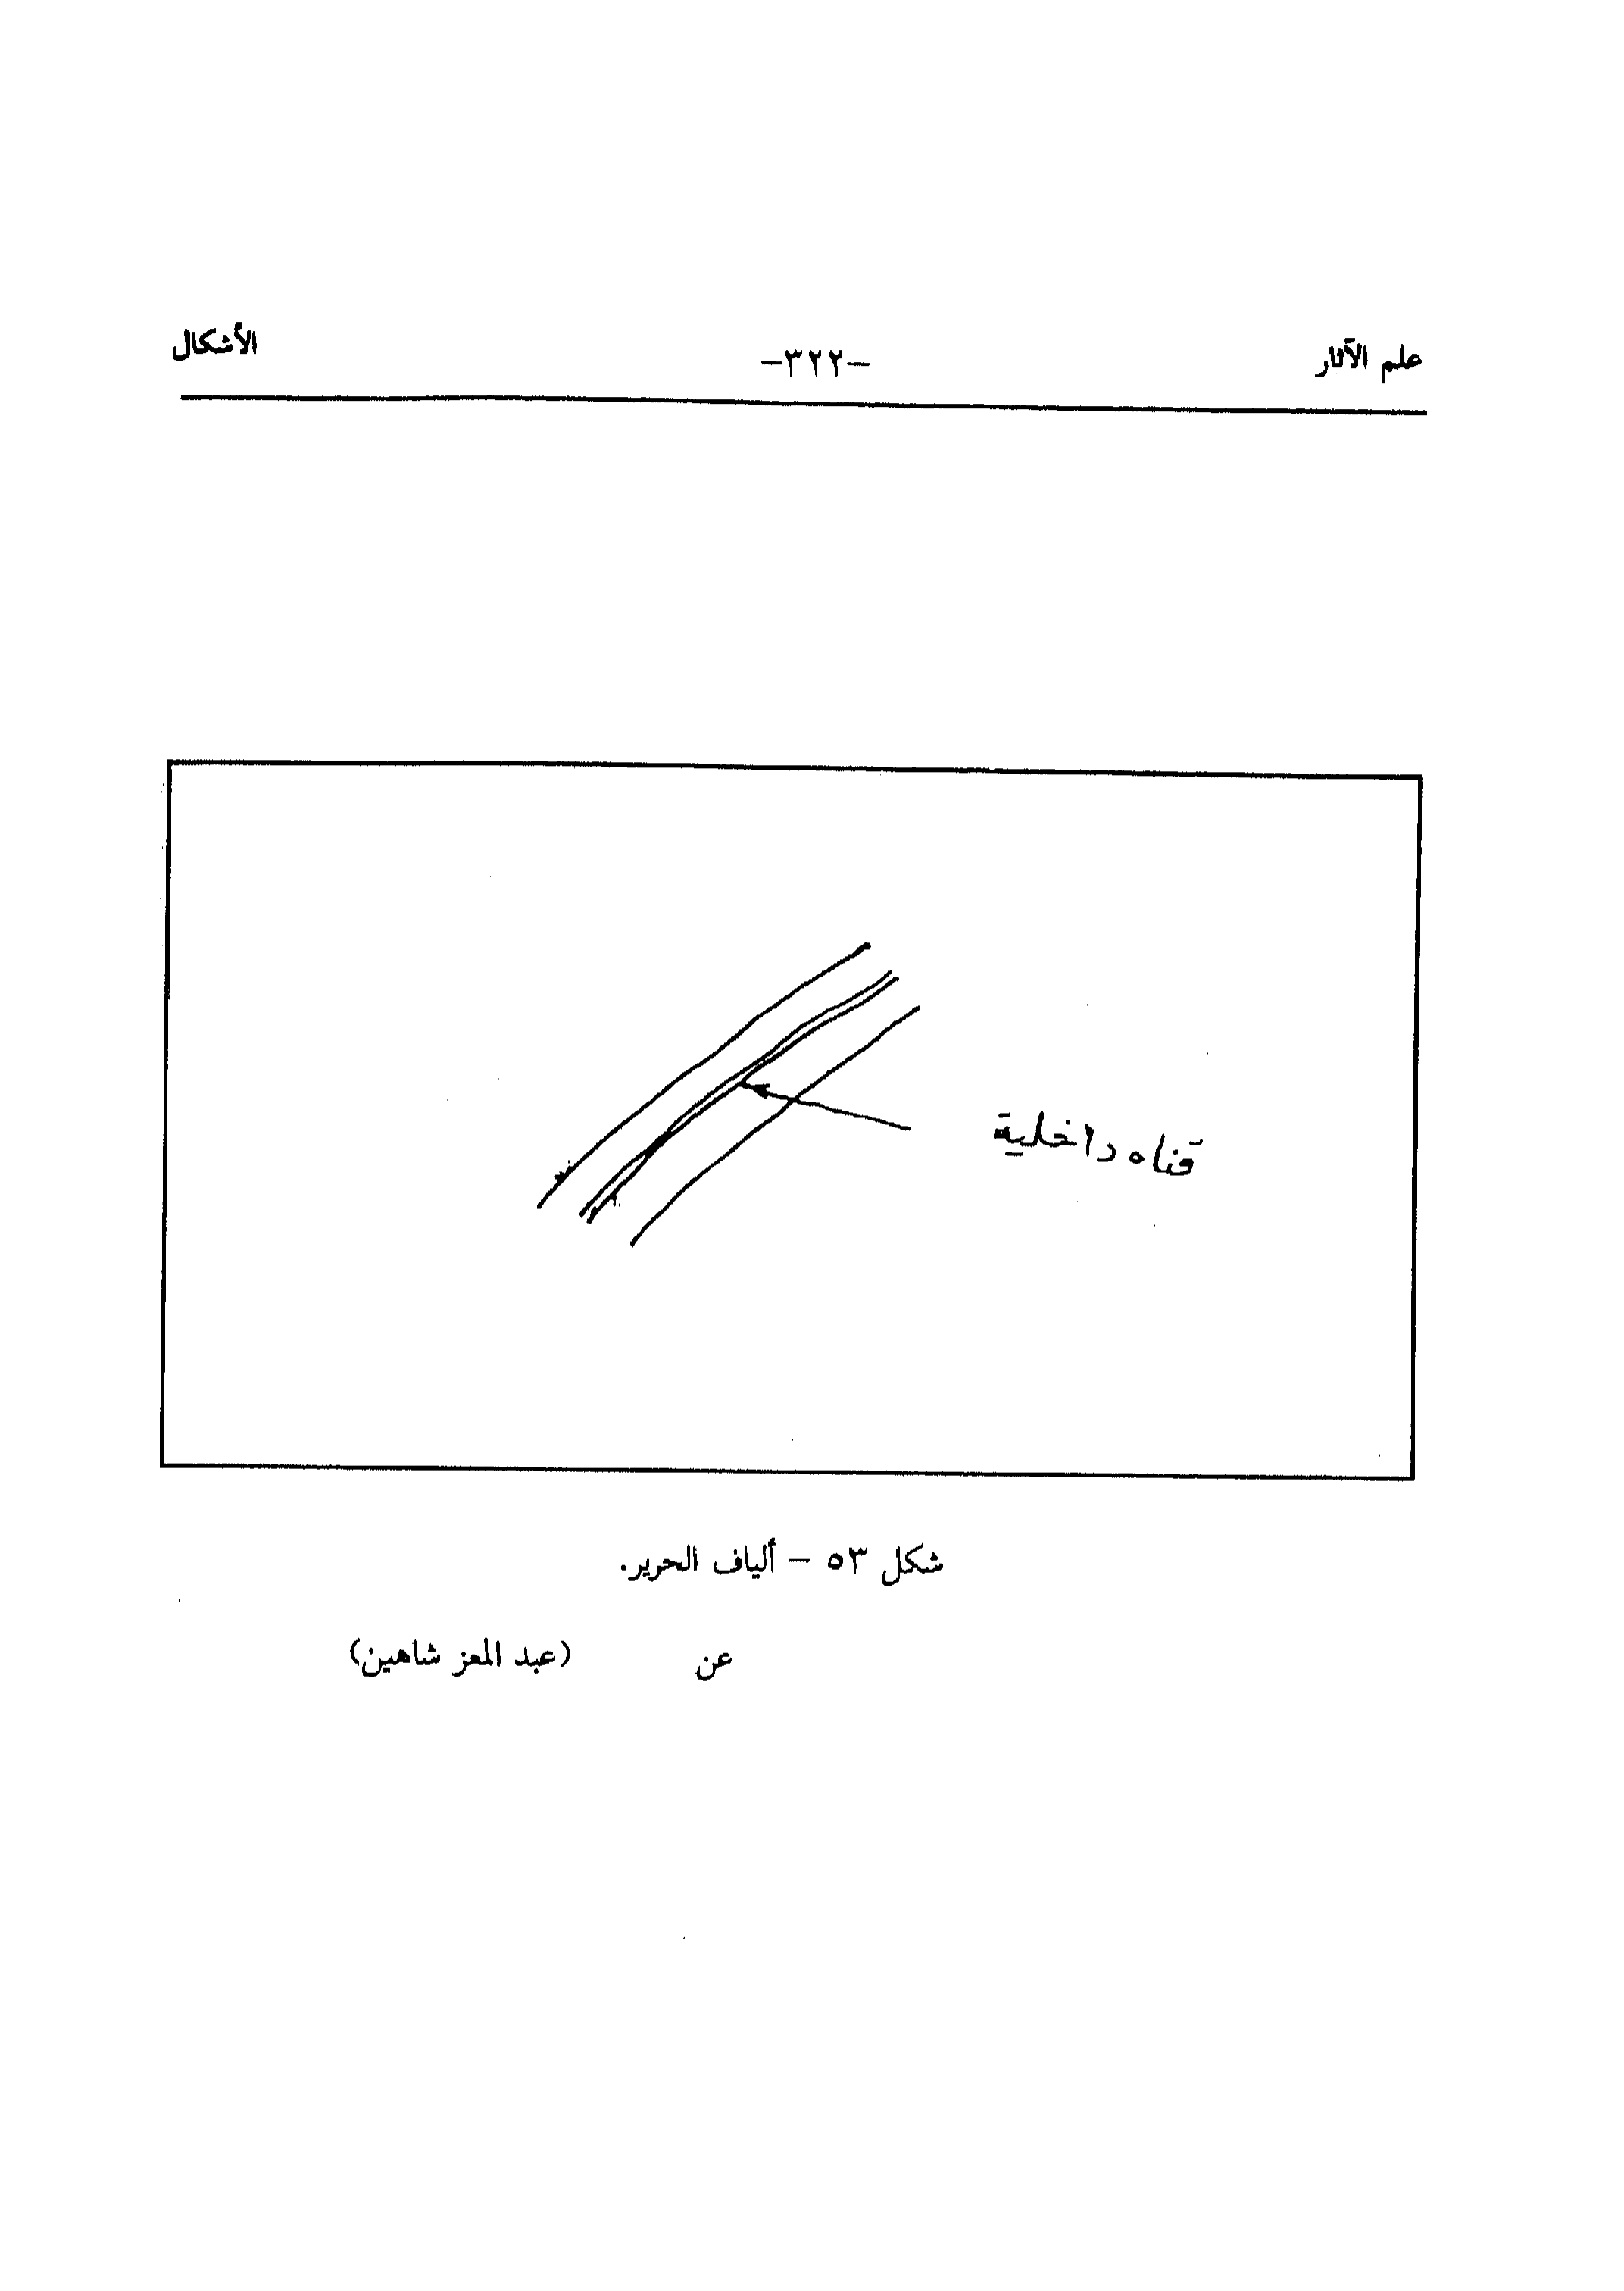 علم الآثار -٣٢٢- الأشكال
قناه داخلية
شكل ٥٣ - ألياف الحرير.
عن (عبد المعز شاهين)